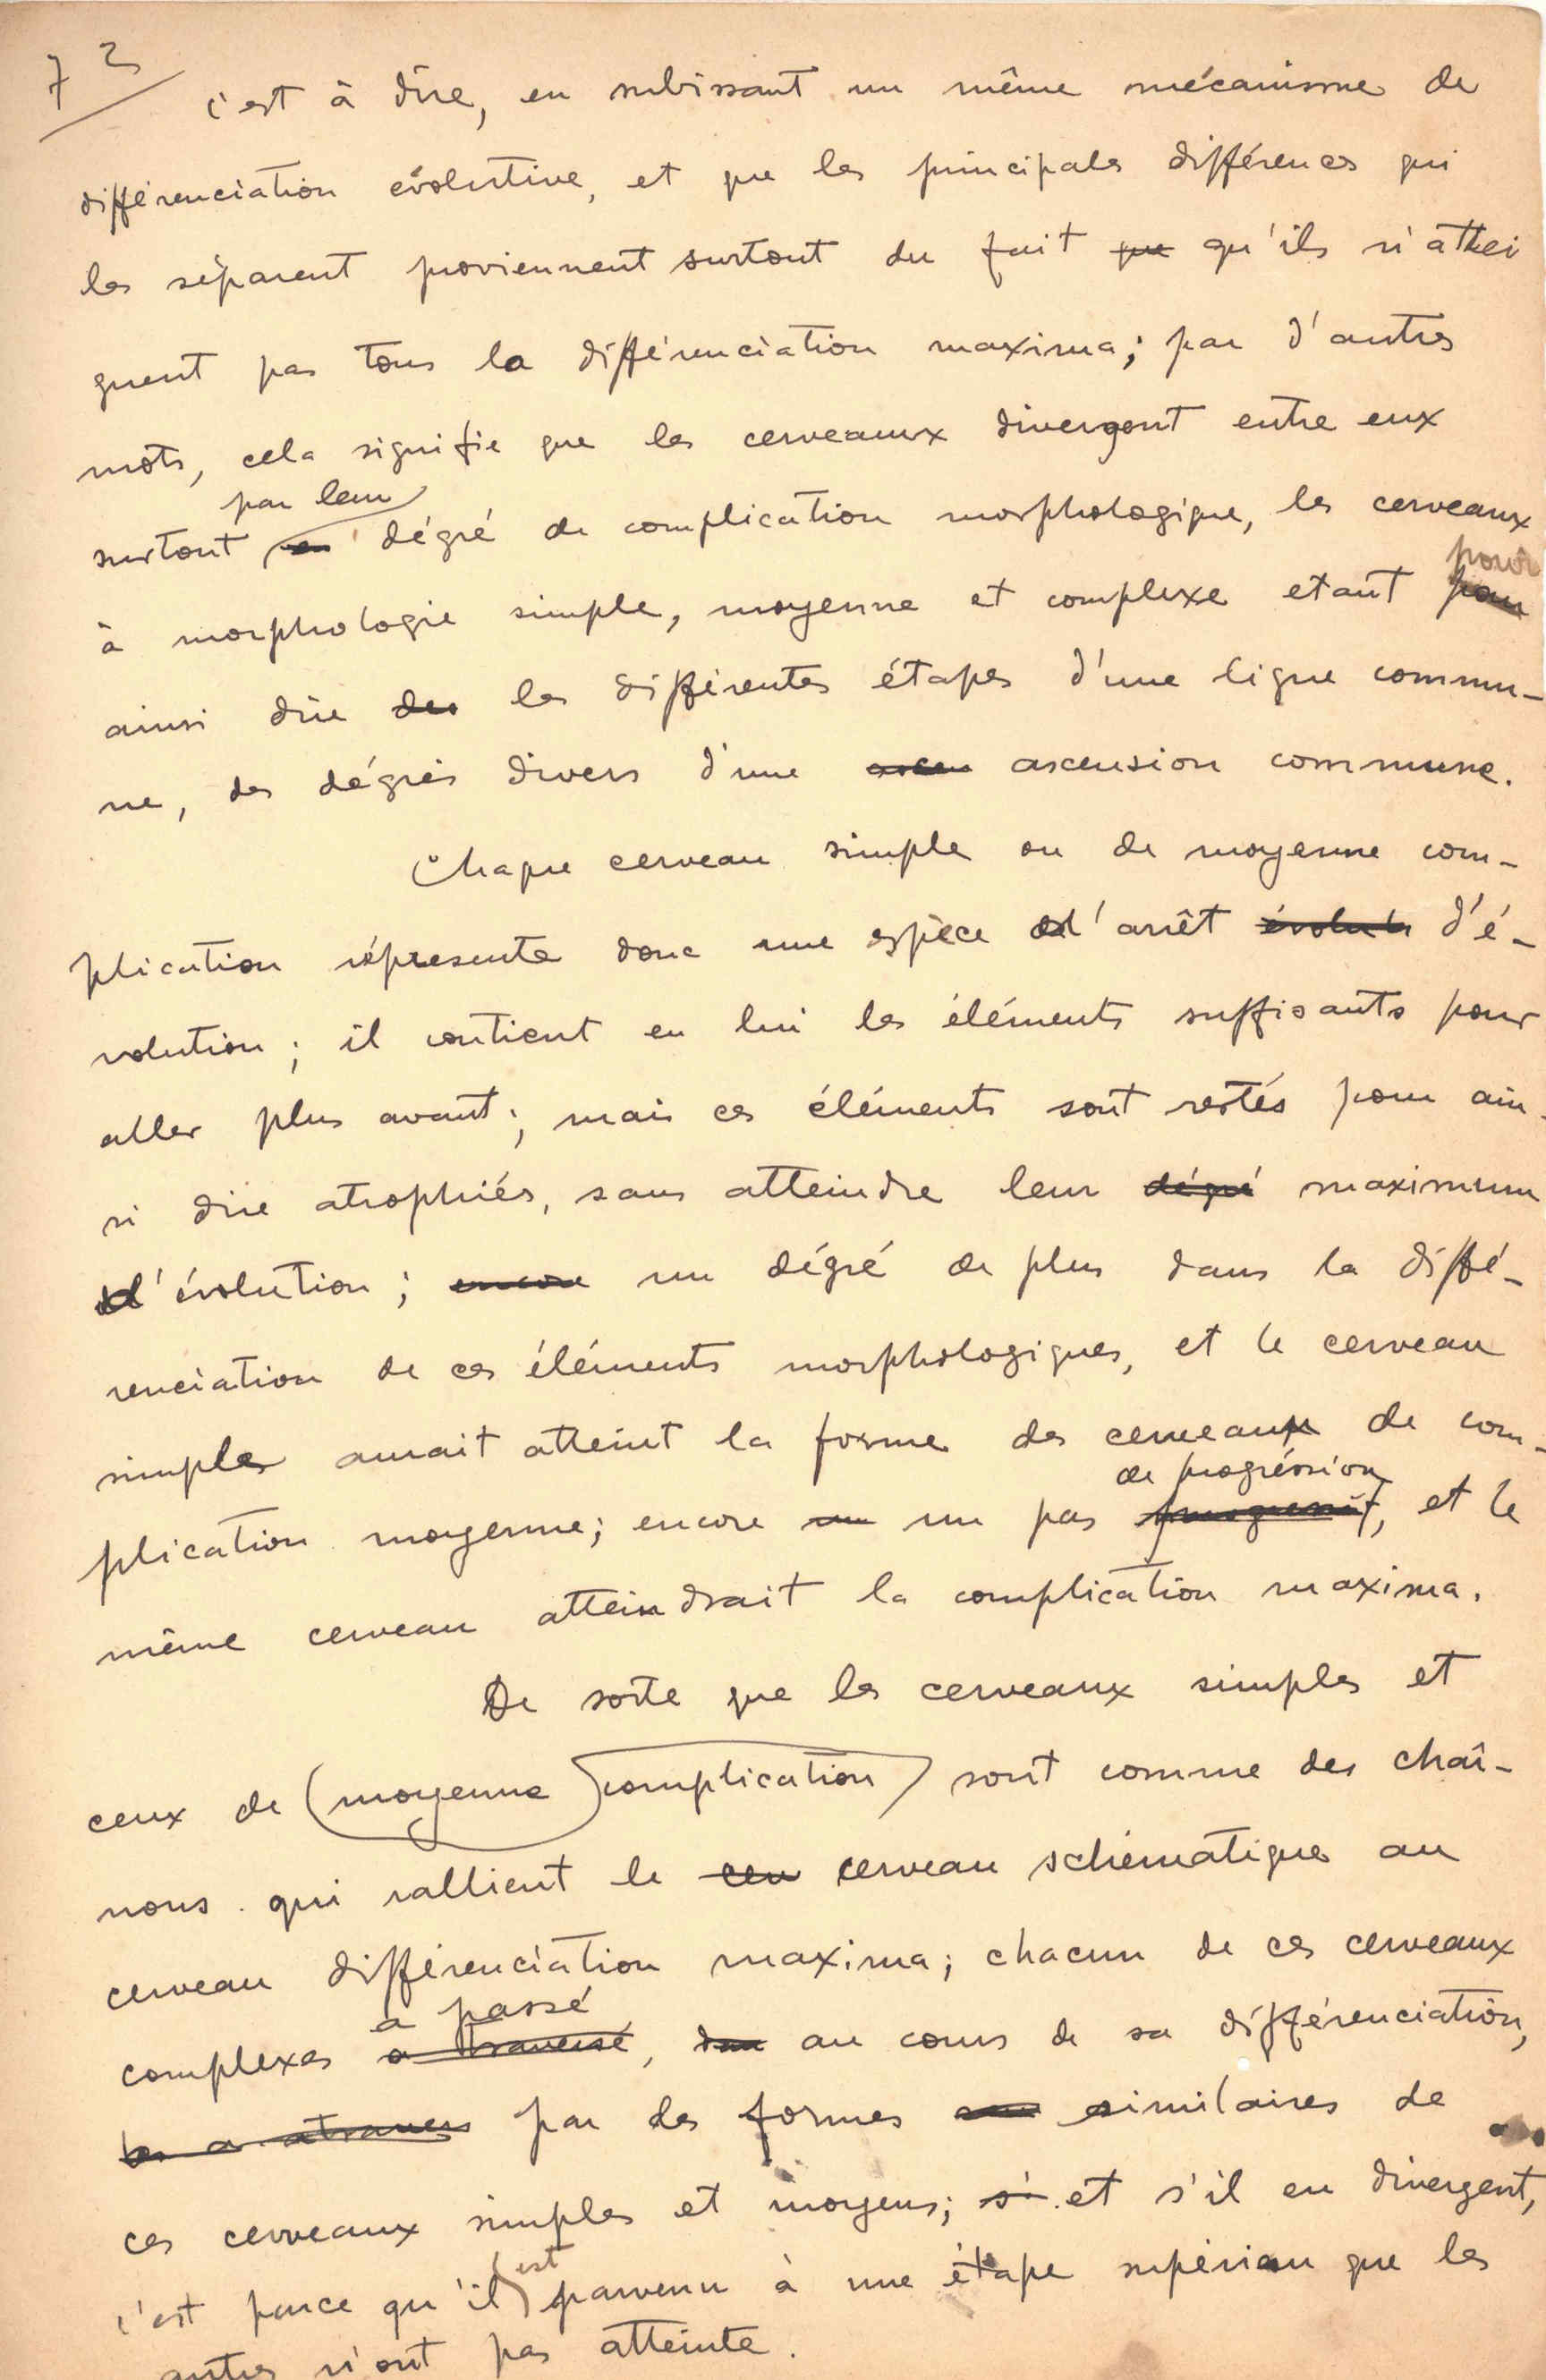 72
c'est à dire, en subissant un même mécanisme de
différenciation évolutive, et que les principales différences qui
les séparent proviennent surtout du fait que qu'ils n'attei
gnent pas tous la différenciation maxima; par d'autres
mots, cela signifie que les cerveaux divergent entre eux
par leur
surtout en dégré de complication morphologique, les cerveaux
pour
à morphologie simple, moyenne et complexe etant pour
ainsi dire des les différentes étapes d'une ligne commu-
ne, des dégrés divers d'une ascen ascension commune.
Chaque cerveau simple ou de moyenne com-
plication répresente donc une espèce d'arrêt évoluti d'é-
volution; il contient en lui les éléments suffisants pour
aller plus avant; mais ces éléments sont restés pour ain-
si dire atrophiés, sans atteindre leur dégré maximum
d'évolution; encore un dégré de plus dans la diffé-
renciation de ces éléments morphologiques, et le cerveau
simple aurait atteint la forme des cerveaux de com-
de progréssion
plication moyenne; encore un un pas progressif, et le
même cerveau atteindrait la complication maxima.
De sorte que les cerveaux simples et
ceux de moyenne complication sont comme des chaî-
nons qui rallient le cerv cerveau schématique au
cerveau différenciation maxima; chacun de ces cerveaux
a passé
complexes a traversé, dan au cours de sa différenciation,
par des formes similaires de
ces cerveaux simples et moyens; si et s'il en divergent,
est
c'est parce qu'il parvenu à une étape supérieur que les
autres n'ont pas atteinte.